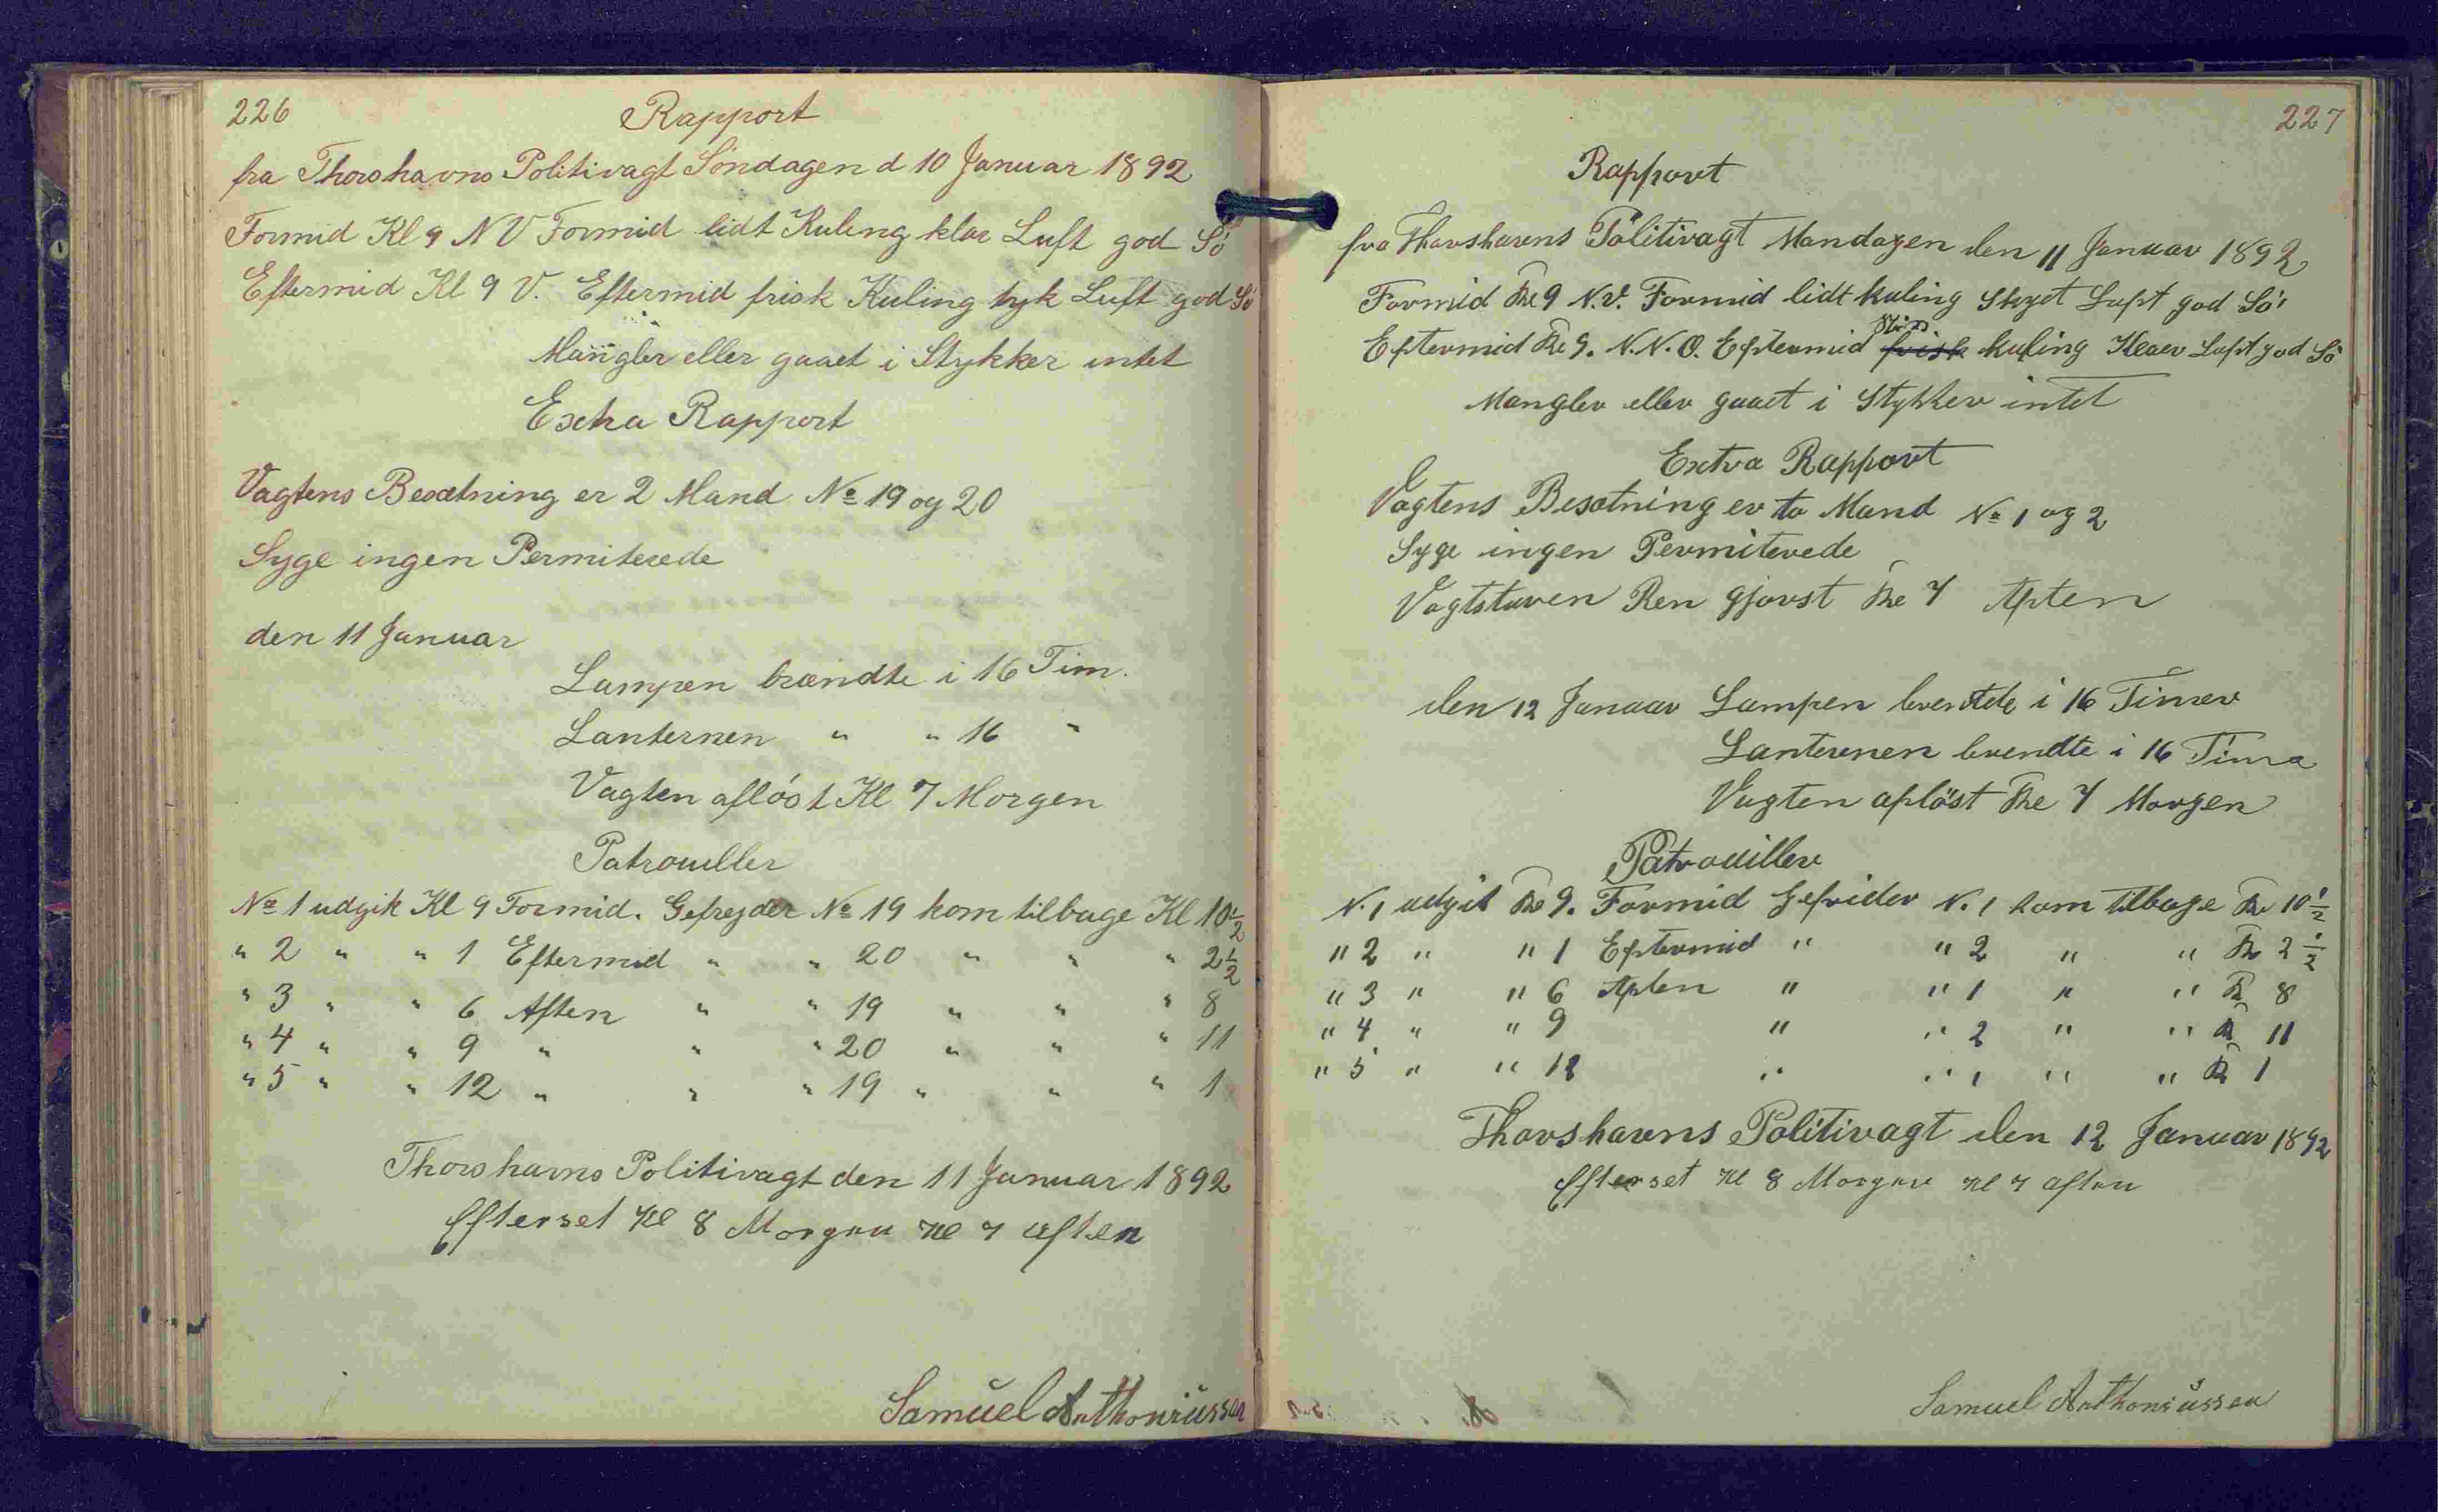 226
Rapport
fra Thorshavns Politivagt Söndagen d 10 Januar 1892
Formid Kl 9 NV Formid lidt Kuling klar Luft god Sö
Eftermid Kl 9 V. Eftermid frisk Kuling tyk Luft god Sö
Mangler eller gaaet i Stykker intet
Extra Rapport
Vagtens Besætning er 2 Mand No 19 og 20
Syge ingen Permiterede
den 11 Januar
Lampen brændte i 16 Tim.
Lanternen " " 16 "
Vagten aflöst Kl 7 Morgen
Patrouller
No 1 udgik Kl 9 Formid. Gefrejder No 19 kom tilbage Kl 10½
" 2 " " 1 Eftermid " " 20 " " " 2½
" 3 " " 6 Aften " " 19 " " " 8
" 4 " " 9 " " " 20 " " " 11
" 5 " " 12 " " " 19 " " " 1
Thorshavns Politivagt den 11 Januar 1892
Efterset Kl 8 Morgen Kl 7 aften
Samuel Anthoniussen
227
Rapport
fra Thorshavens Politivagt Mandagen den 11 Januar 1892
Formid Kl 9 N.V. Formid lidt kuling Skyet Luft god Sö
Eftermid Kl 9. N.N.O. Eftermid frisk kuling Klaer Luft god Sö
Mangler eller gaaet i Stykker intet
Extra Rapport
Vagtens Besætning er to Mand No 1 og 2
Syge ingen Permiterede
Vagtstuven Ren gjorst Kl 7 Aften
den 12 Januar Lampen brendte i 16 Timer
Lanternen brendte i 16 Tima
Vagten aflöst Kl 7 Morgen
Patrouiller
N. 1 udgit Kl 9. Formid Gefrider N. 1 kom tilbage Kl 10½
" 2 " " 1 Eftermid " " 2 " " Kl 2½
" 3 " " 6 Aften " " 1 " " Kl 8
" 4 " " 9 " " 2 " " Kl 11
" 5 " " 12 " " 1 " " Kl 1
Thorshavens Politivagt den 12 Januar 1892
Efterset Kl 8 Morgen Kl 7 aften
Samuel Anthoniussen